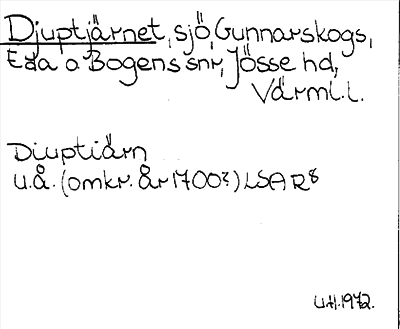 Djuptjärnet, sjö, Gunnarskogs,
Eda o Bogens snr, Jösse hd,
Värml. l.
Diuptiärn
u.å. (omkr. år 1700?) LSAR 8
U.H. 1972.